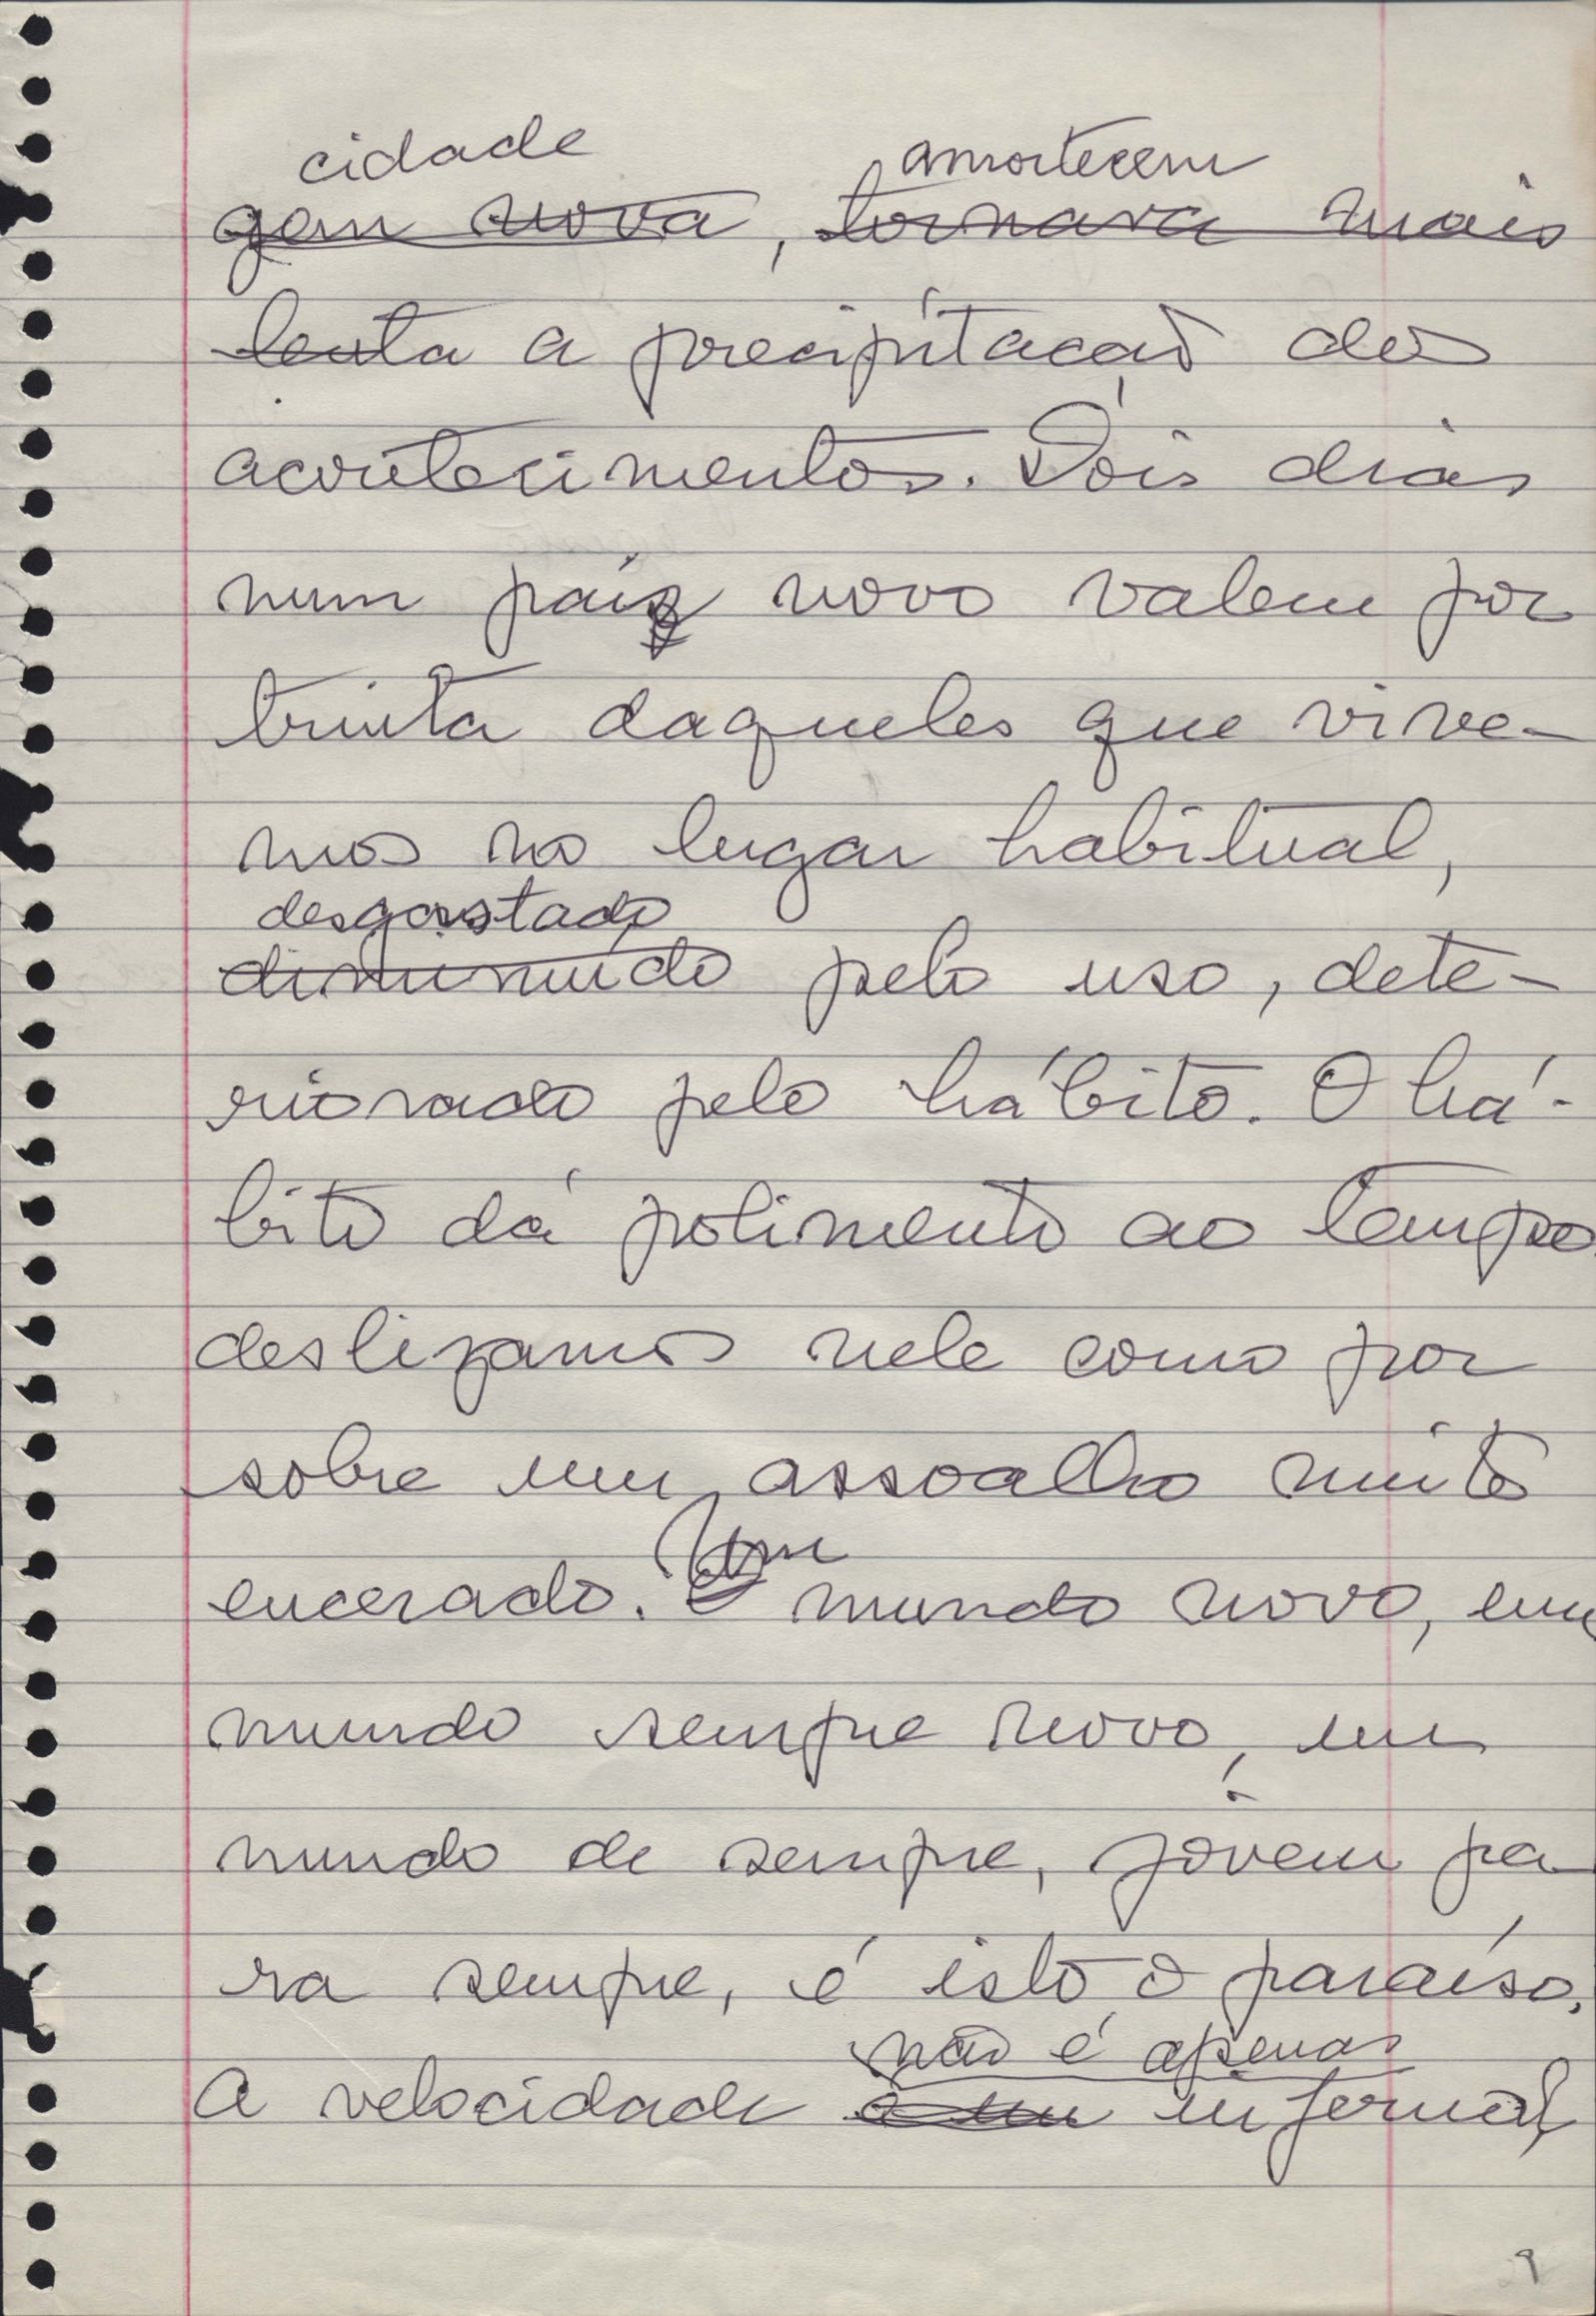 cidade amortecem
gem nova, tornava mais
lenta a precipitação dos
acontecimentos. Dois dias
num país novo valem por
trinta daqueles que vive-
mos no lugar habitual,
desgastado
diminuido pelo uso, dete-
riorado pelo hábito. O há-
bito dá polimento ao tempo
deslizamos nele como por
sobre um assoalho muito
encerado. Um
O mundo novo, um
mundo sempre novo, um
mundo de sempre, jovem pa-
ra sempre, é isto o paraíso.
não é apenas
A velocidade é um infernal,
9